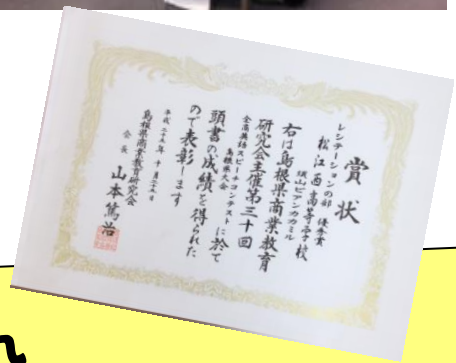 賞状
レシテーションの部 優秀賞
松江西高等学校
ビアンカカミル
右は島根県商業教育
研究会主催第三十回
全商英語スピーチコンテスト
島根県大会
に於て
頭書の成績を得られた
ので表彰します
平成二十九年十月二十九日
島根県商業教育研究会
会長 山本篤治